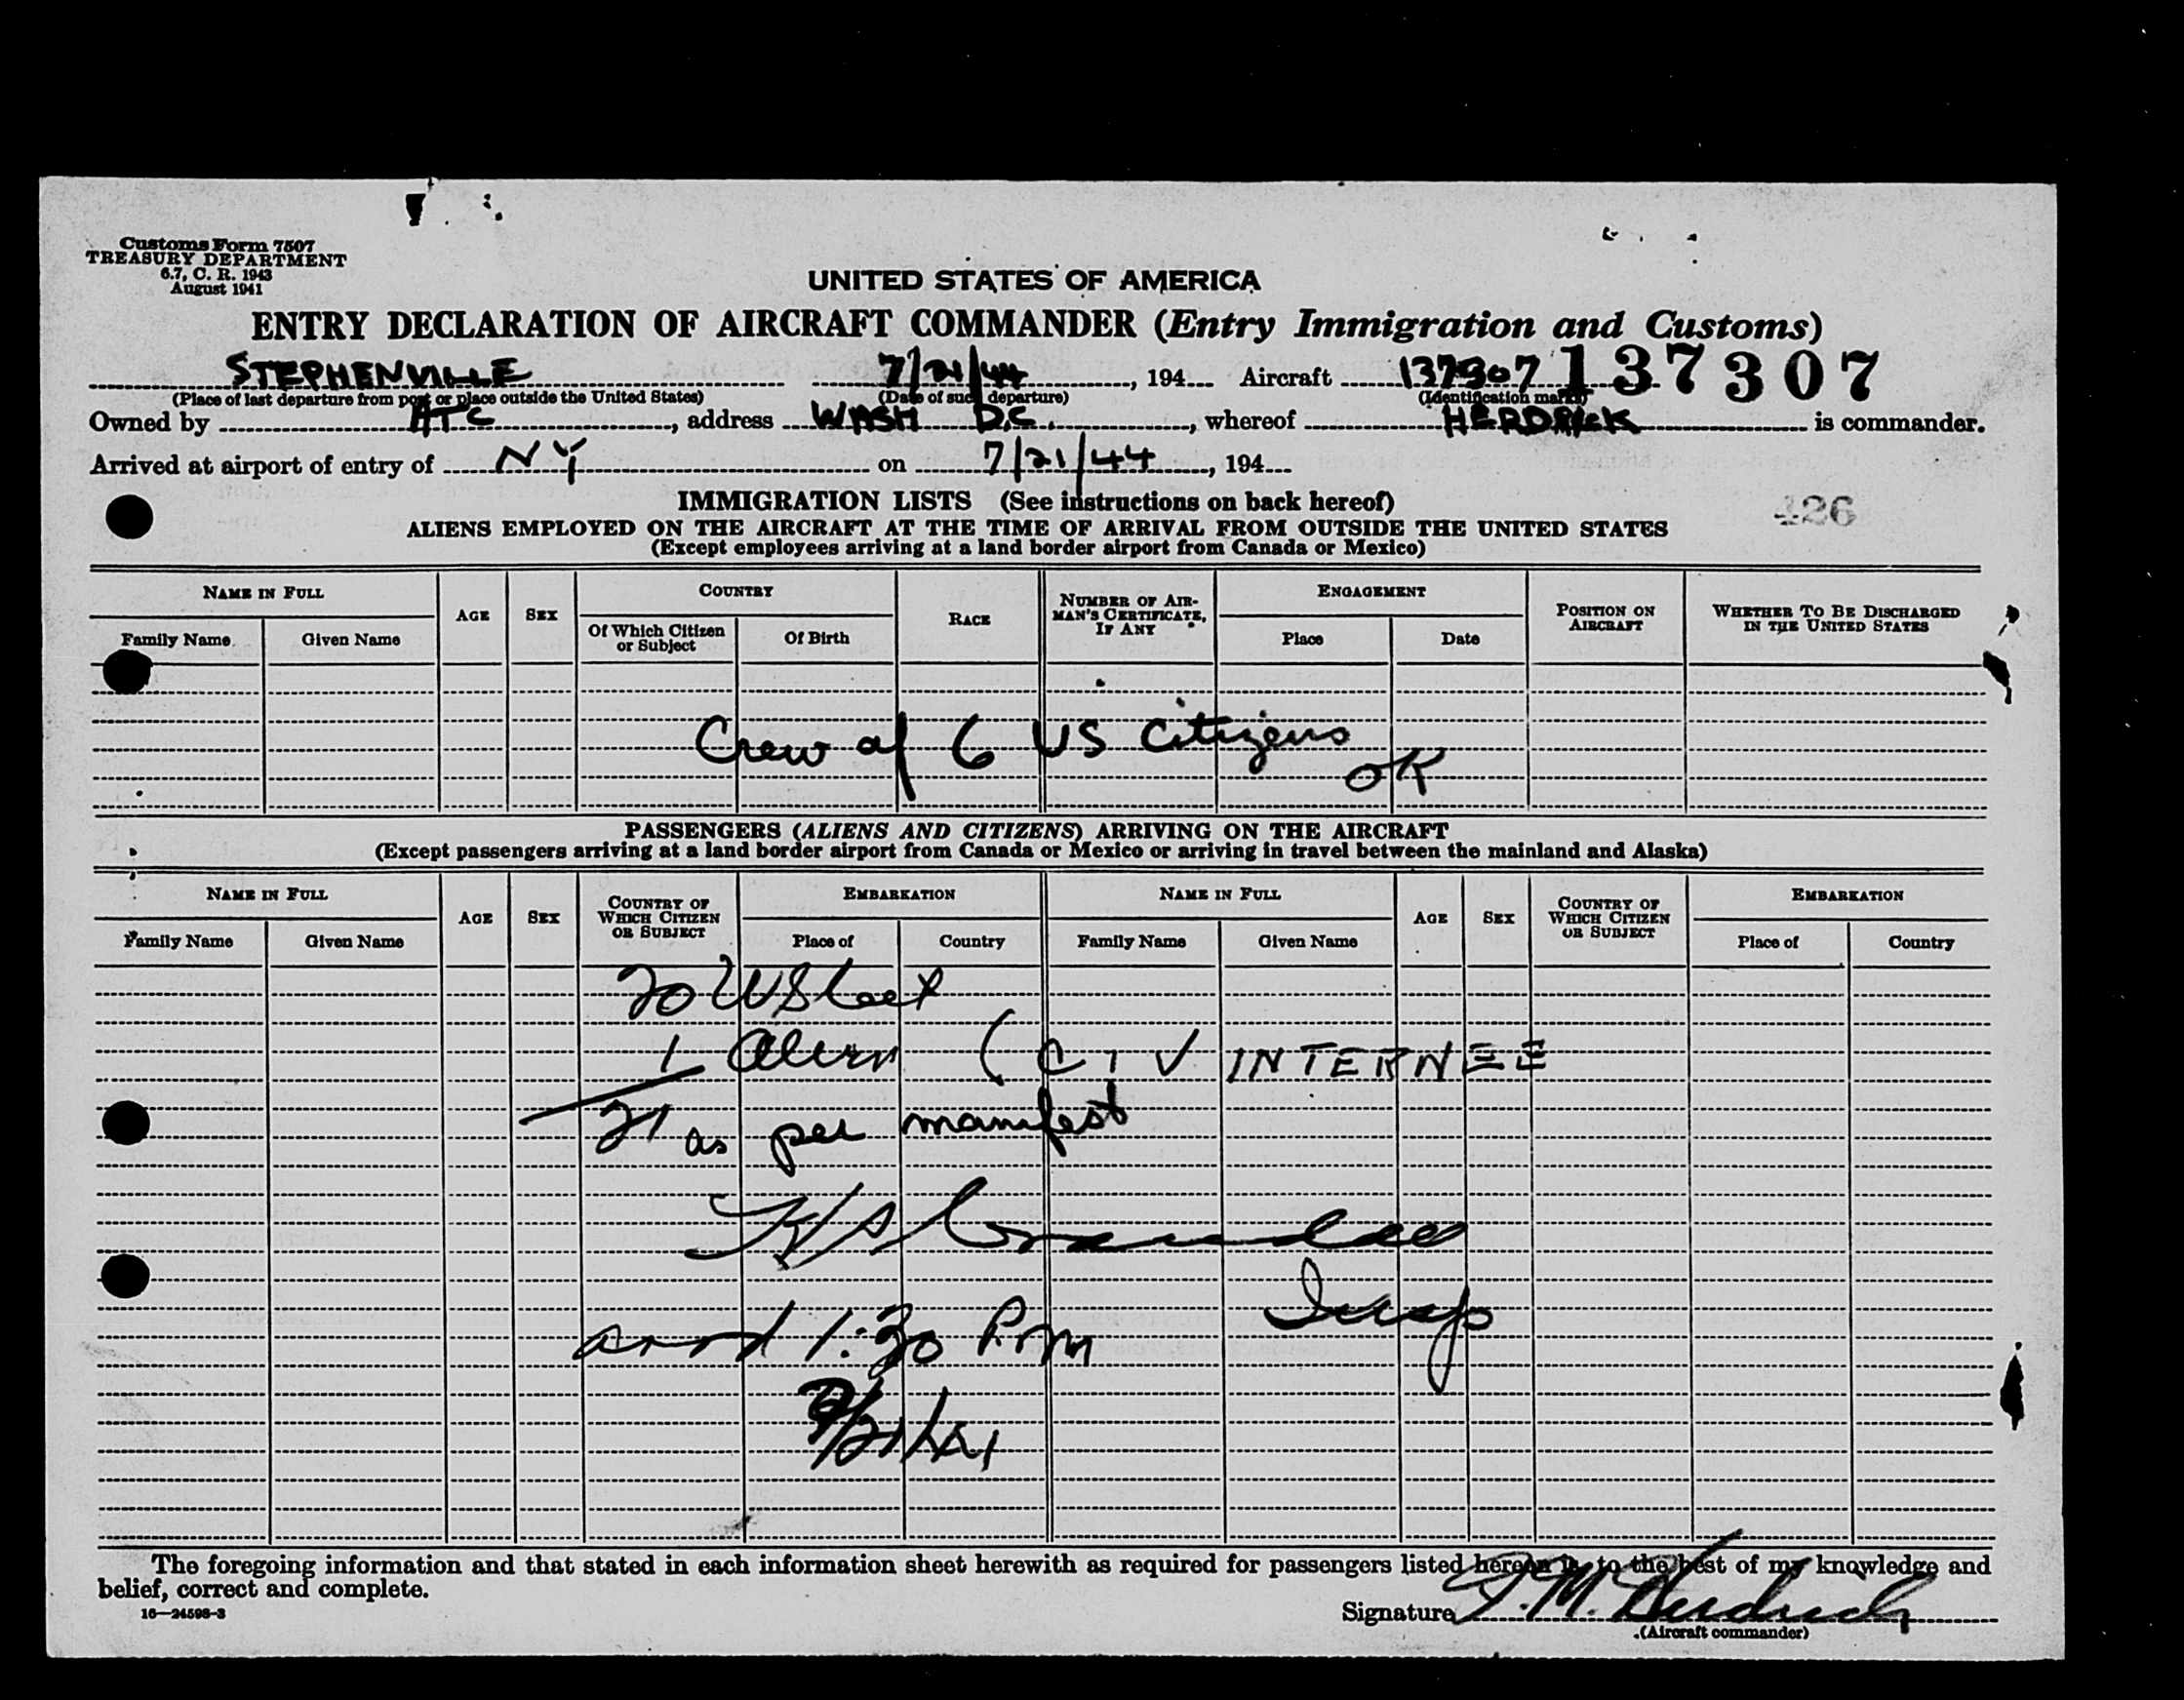 Customs Form 7507
TREASURY DEPARTMENT
6.7, C. R. 1943
August 1941
UNITED STATES OF AMERICA
ENTRY DECLARATION OF AIRCRAFT COMMANDER (Entry Immigration and Customs)
STEPHENVILLE 7/21/44, 194 Aircraft 137307 137307
(Place of last departure from port or place outside the United States) (Date of such departure) (Identification marks)
Owned by ATC, address WASH D.C., whereof HERDRICK is commander.
Arrived at airport of entry of NY on 7/21/44, 194
IMMIGRATION LISTS (See instructions on back hereof)
426
ALIENS EMPLOYED ON THE AIRCRAFT AT THE TIME OF ARRIVAL FROM OUTSIDE THE UNITED STATES
(Except employees arriving at a land border airport from Canada or Mexico)
NAME IN FULL AGE SEX COUNTRY RACE NUMBER OF AIRMAN'S CERTIFICATE, IF ANY ENGAGEMENT POSITION ON AIRCRAFT WHETHER TO BE DISCHARGED IN THE UNITED STATES
Family Name Given Name Of Which Citizen or Subject Of Birth Place Date
Crew of 6 US Citizens
OK
PASSENGERS (ALIENS AND CITIZENS) ARRIVING ON THE AIRCRAFT
(Except passengers arriving at a land border airport from Canada or Mexico or arriving in travel between the mainland and Alaska)
NAME IN FULL AGE SEX COUNTRY OF WHICH CITIZEN OR SUBJECT EMBARKATION NAME IN FULL AGE SEX COUNTRY OF WHICH CITIZEN OR SUBJECT EMBARKATION
Family Name Given Name Place of Country Family Name Given Name Place of Country
20 US
1 Alien (CIV INTERNEE
21 as per manifest
Insp
arrd 1:30 P.M
The foregoing information and that stated in each information sheet herewith as required for passengers listed hereon is, to the best of my knowledge and
belief, correct and complete.
16—24598-3
Signature
(Aircraft commander)